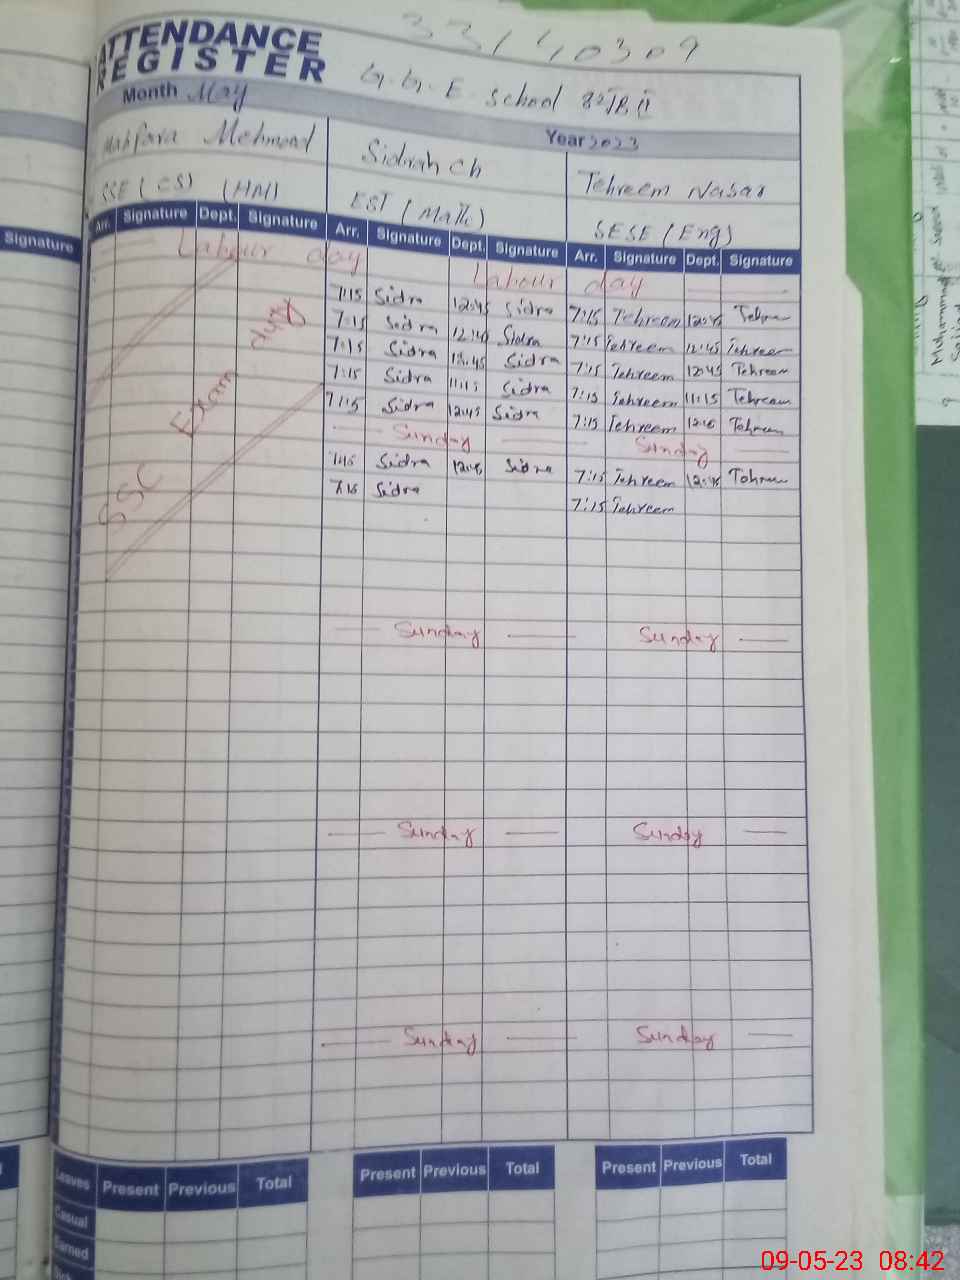 33140309
ATTENDANCE
REGISTER
G.G.E. School 82 JB II
Month May
Year 2023
Mehmood
Sidrah Ch
Tehreem Nasar
SSE (CS) (HM)
EST (Math)
SESE (Eng)
Signature
Arr. Signature Dept. Signature Arr. Signature Dept. Signature Arr. Signature Dept. Signature
Labour day
Labour day
7:15 Sidra 12:45 Sidra 7:15 Tehreem 12:45 Tehreem
7:15 Sidra 12:45 Sidra 7:15 Tehreem 12:45 Tehreem
7:15 Sidra 12:45 Sidra 7:15 Tehreem 12:45 Tehreem
7:15 Sidra 11:15 Sidra 7:15 Tehreem 11:15 Tehreem
7:15 Sidra 12:45 Sidra 7:15 Tehreem Tehreem
Sunday Sunday
Sidra 12:45 Sidra 7:15 Tehreem 12:45 Tehreem
7:15 Sidra 7:15 Tehreem
SSC Exam duty
Sunday Sunday
Sunday Sunday
Sunday Sunday
Leaves Present Previous Total Present Previous Total Present Previous Total
Casual
Earned
09-05-23 08:42